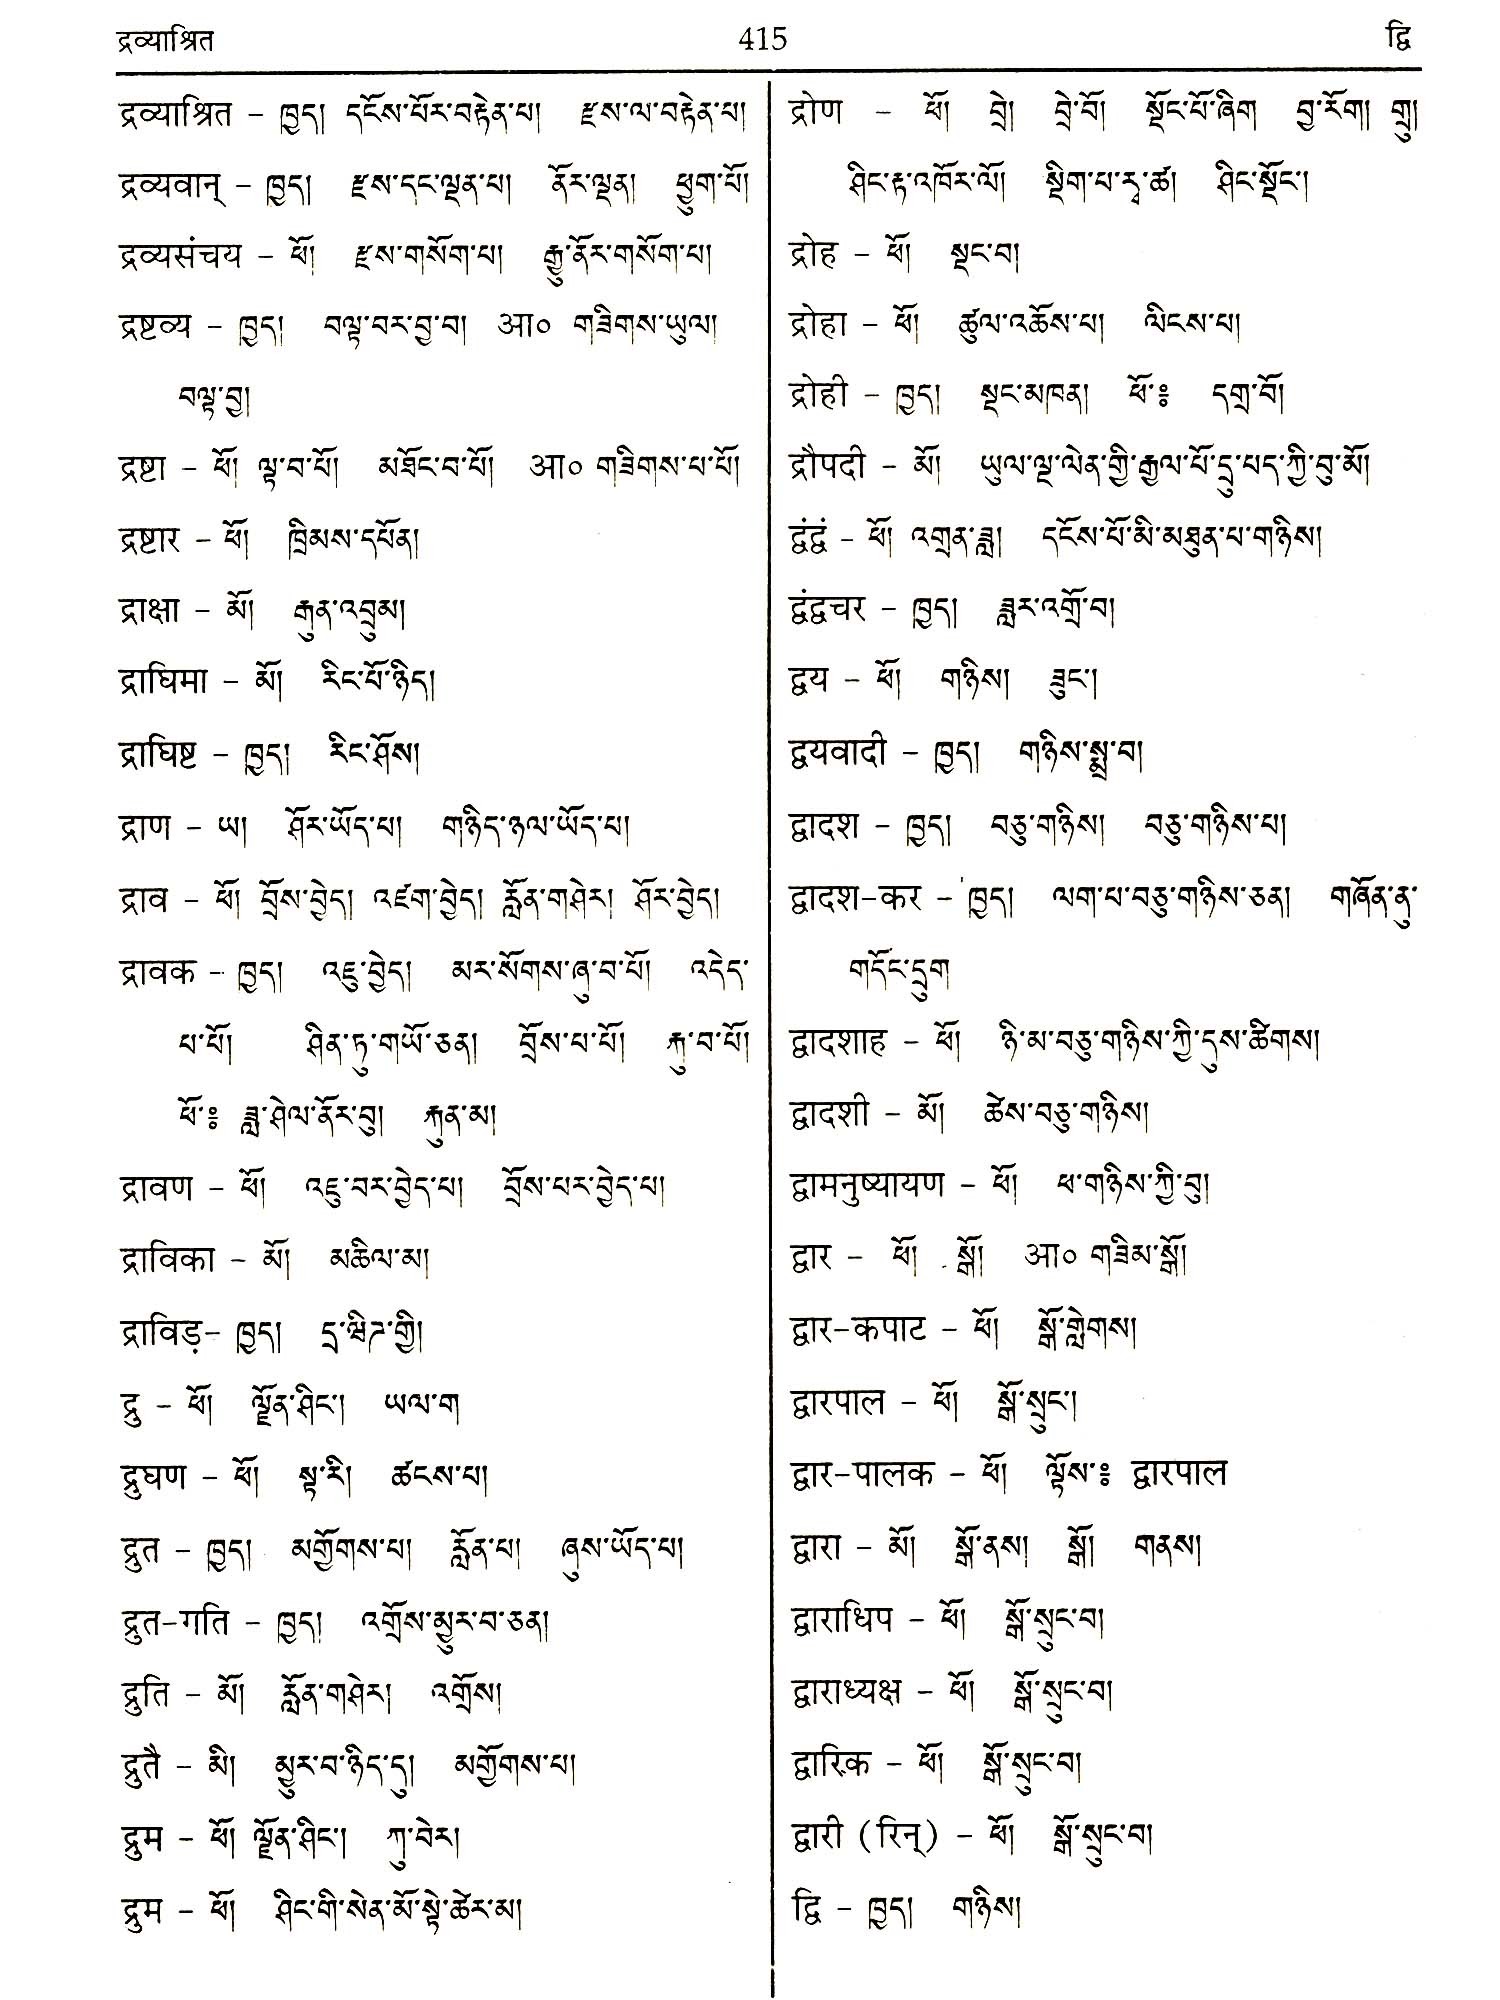 द्रव्याश्रित 415 द्वि
द्रव्याश्रित - ཁྱད། དངོས་པོར་བརྟེན་པ། རྫས་ལ་བརྟེན་པ།
द्रव्यवान् - ཁྱད། རྫས་དང་ལྡན་པ། ནོར་ལྡན། ཕྱུག་པོ།
द्रव्यसंचय - ཕོ། རྫས་གསོག་པ། རྒྱུ་ནོར་གསོག་པ།
द्रष्टव्य - ཁྱད། བལྟ་བར་བྱ་བ། आ० གཟིགས་ཡུལ།
བལྟ་བྱ།
द्रष्टा - ཕོ། ལྟ་བ་པོ། མཐོང་བ་པོ། आ० གཟིགས་པ་པོ།
द्रष्टार - ཕོ། ཁྲིམས་དཔོན།
द्राक्षा - མོ། རྒུན་འབྲུམ།
द्राघिमा - མོ། རིང་པོ་ཉིད།
द्राघिष्ट - ཁྱད། རིང་ཤོས།
द्राण - ཡ། ཤོར་ཡོད་པ། གཉིད་ཉལ་ཡོད་པ།
द्राव - ཕོ། བྲོས་བྱེད། འཛག་བྱེད། རློན་གཤེར། ཤོར་བྱེད།
द्रावक - ཁྱད། འཇུ་བྱེད། མར་སོགས་ཞུ་བ་པོ། འདེད་
པ་པོ། ཤིན་ཏུ་གཡོ་ཅན། བྲོས་པ་པོ། རྐུ་བ་པོ།
ཕོ་ཿ ཟླ་ཤེལ་ནོར་བུ། རྐུན་མ།
द्रावण - ཕོ། འཇུ་བར་བྱེད་པ། བྲོས་པར་བྱེད་པ།
द्राविका - མོ། མཆིལ་མ།
द्राविड़- ཁྱད། དྲ་ཝིཌ་གྱི།
द्रु - ཕོ། ལྗོན་ཤིང་། ཡལ་ག
द्रुघण - ཕོ། སྟ་རི། ཚངས་པ།
द्रुत - ཁྱད། མགྱོགས་པ། རློན་པ། ཞུས་ཡོད་པ།
द्रुत-गति - ཁྱད། འགྲོས་མྱུར་བ་ཅན།
द्रुति - མོ། རློན་གཤེར། འགྲོས།
द्रुतै - མི། མྱུར་བ་ཉིད་དུ། མགྱོགས་པ།
द्रुम - ཕོ། ལྗོན་ཤིང་། ཀུ་བེར།
द्रुम - ཕོ། ཤིང་གི་སེན་མོ་སྟེ་ཚེར་མ།
द्रोण - ཕོ། བྲེ། བྲེ་བོ། སྡོང་པོ་ཞིག བྱ་རོག། གྲུ།
ཤིང་རྟ་འཁོར་ལོ། སྡིག་པ་རྭ་ཚ། ཤིང་སྡོང་།
द्रोह - ཕོ། སྡང་བ།
द्रोहा - ཕོ། ཚུལ་འཆོས་པ། ལིངས་པ།
द्रोही - ཁྱད། སྡང་མཁན། ཕོ་ཿ དགྲ་བོ།
द्रौपदी - མོ། ཡུལ་ལྔ་ལེན་གྱི་རྒྱལ་པོ་དྲུ་པད་ཀྱི་བུ་མོ།
द्वंद्वं - ཕོ། འགྲན་ཟླ། དངོས་པོ་མི་མཐུན་པ་གཉིས།
द्वंद्वचर - ཁྱད། ཟླར་འགྲོ་བ།
द्वय - ཕོ། གཉིས། ཟུང་།
द्वयवादी - ཁྱད། གཉིས་སྨྲ་བ།
द्वादश - ཁྱད། བཅུ་གཉིས། བཅུ་གཉིས་པ།
द्वादश-कर - ཁྱད། ལག་པ་བཅུ་གཉིས་ཅན། གཞོན་ནུ་
གདོང་དྲུག
द्वादशाह - ཕོ། ཉི་མ་བཅུ་གཉིས་ཀྱི་དུས་ཚིགས།
द्वादशी - མོ། ཚེས་བཅུ་གཉིས།
द्वामनुष्यायण - ཕོ། ཕ་གཉིས་ཀྱི་བུ།
द्वार - ཕོ། སྒོ། आ० གཟིམ་སྒོ།
द्वार-कपाट - ཕོ། སྒོ་གླེགས།
द्वारपाल - ཕོ། སྒོ་སྲུང་།
द्वार-पालक - ཕོ། ལྟོས་ཿ द्वारपाल
द्वारा - མོ། སྒོ་ནས། སྒོ། གནས།
द्वाराधिप - ཕོ། སྒོ་སྲུང་བ།
द्वाराध्यक्ष - ཕོ། སྒོ་སྲུང་བ།
द्वारिक - ཕོ། སྒོ་སྲུང་བ།
द्वारी (रिन्) - ཕོ། སྒོ་སྲུང་བ།
द्वि - ཁྱད། གཉིས།